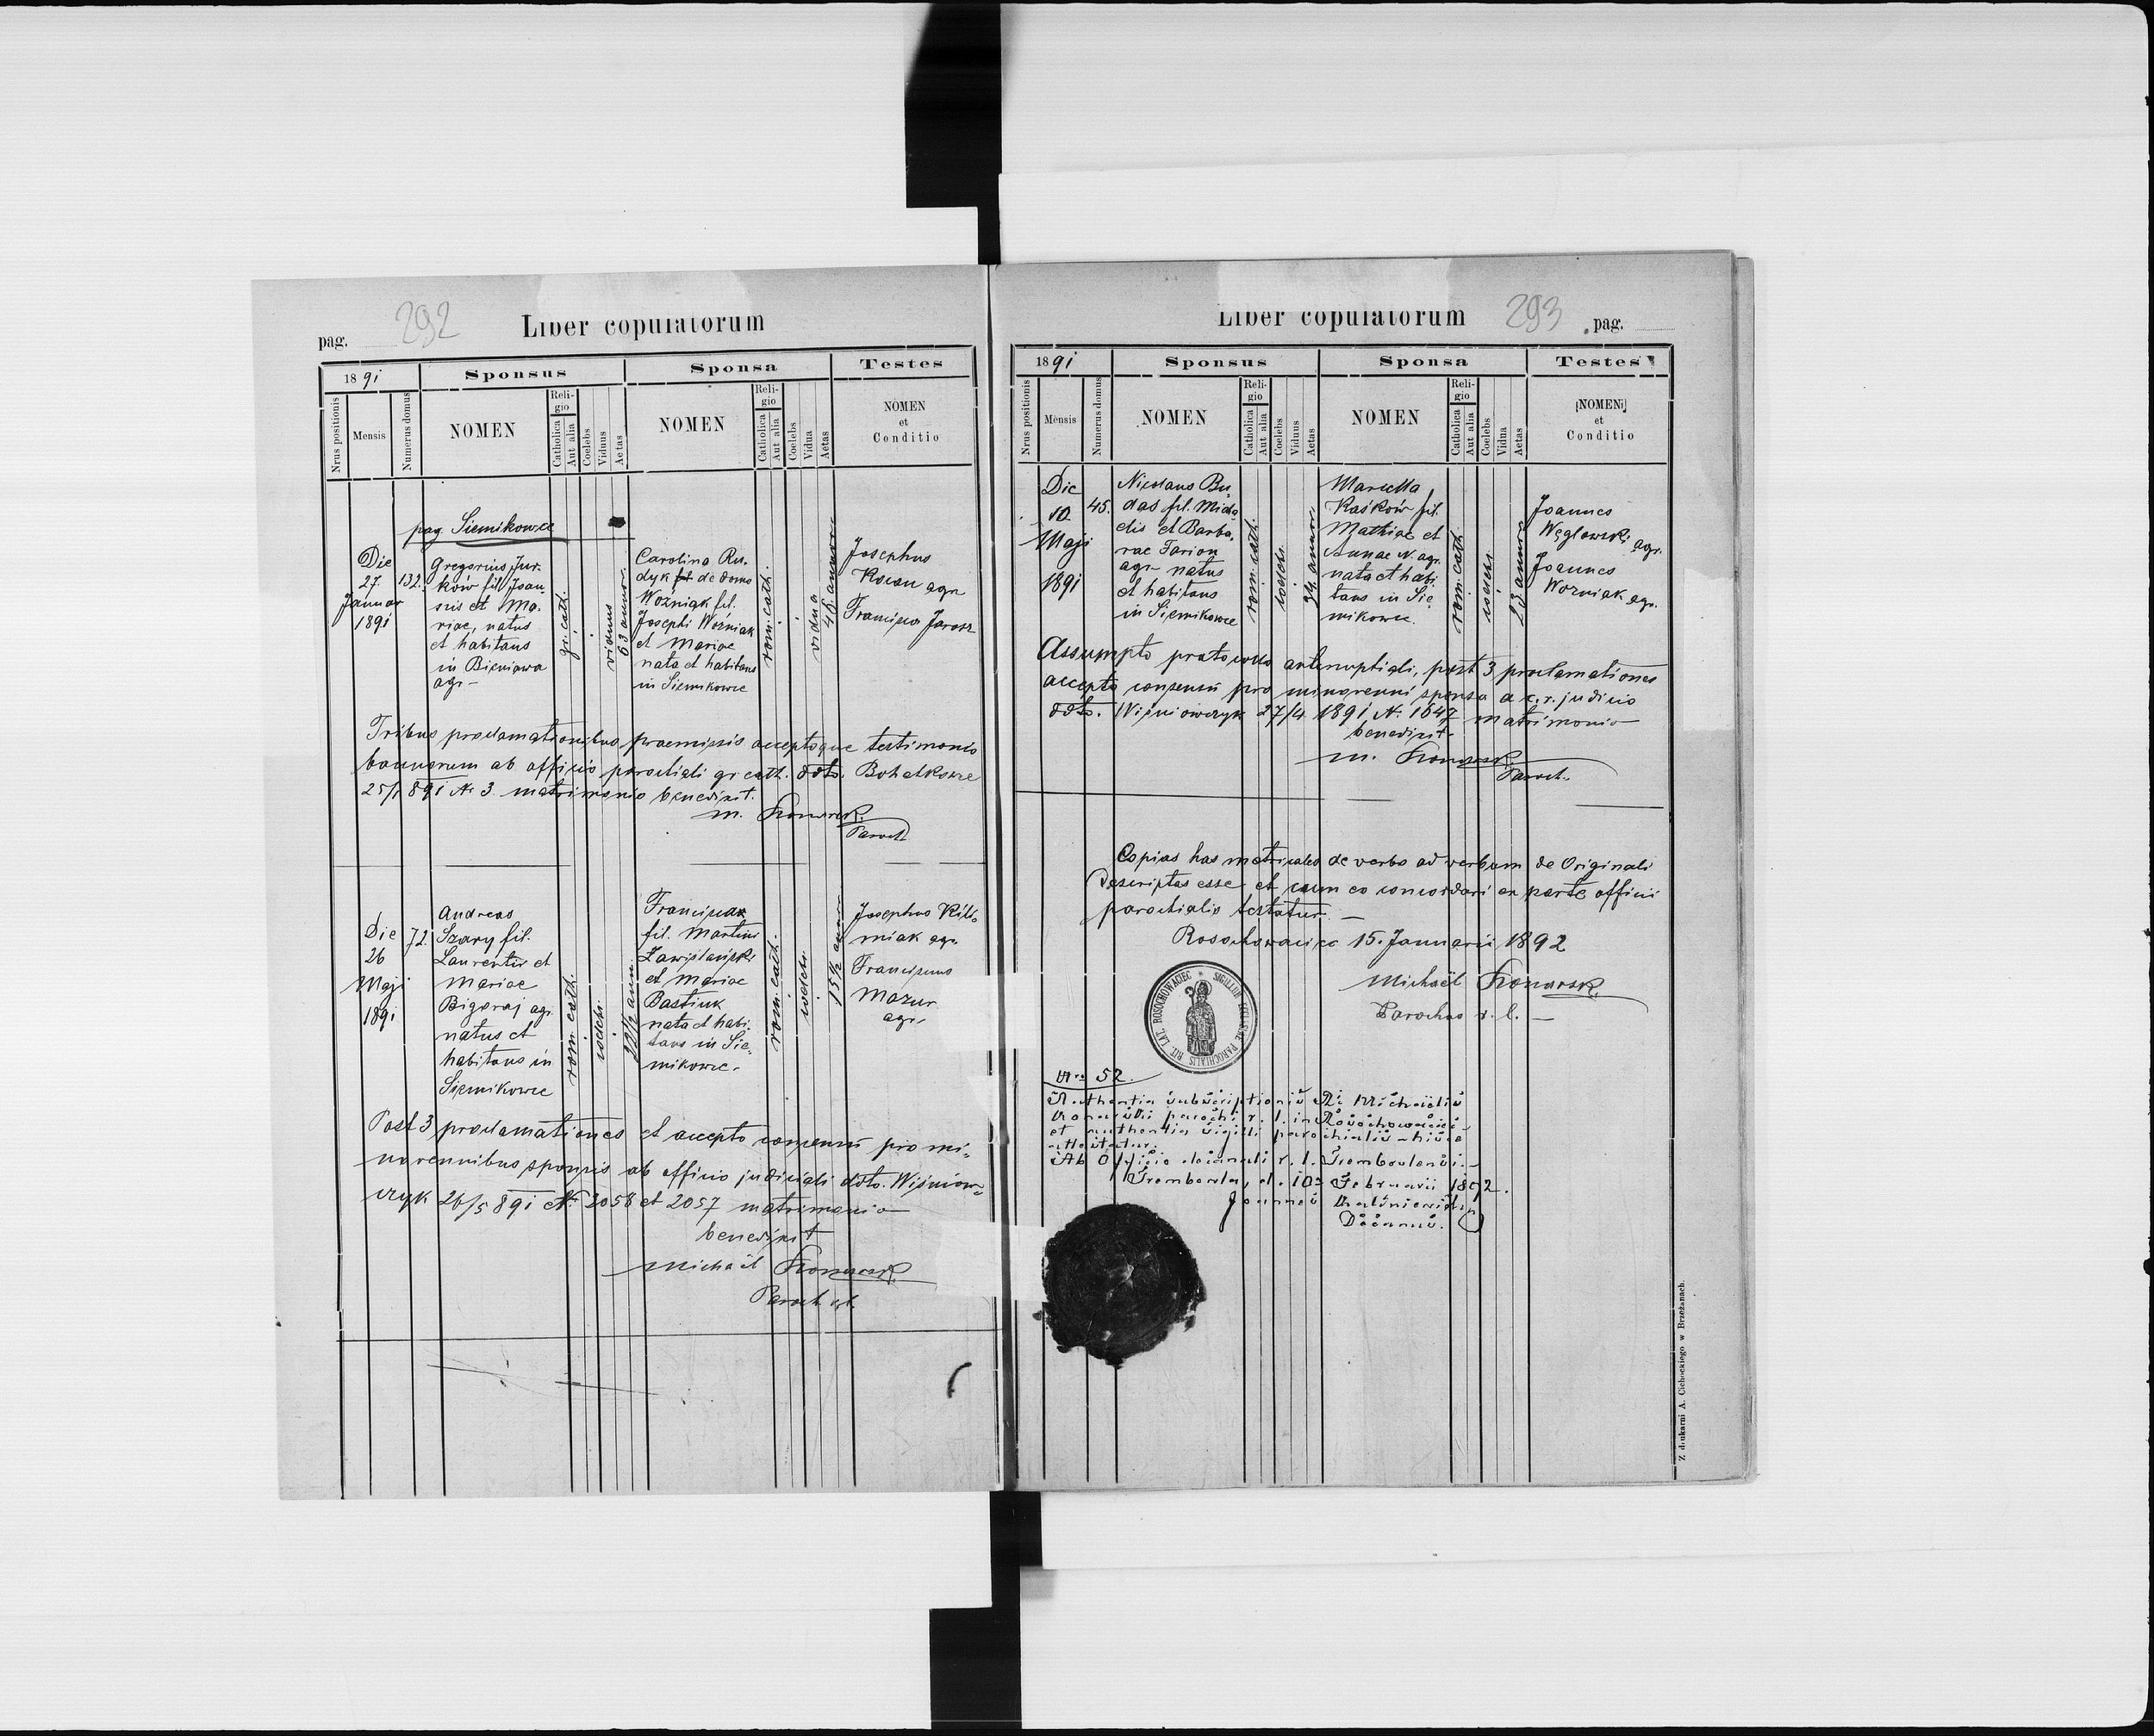 292
pag.
Liber copulatorum
1891
Sponsus
Sponsa
Testes
Nrus positionis
Mensis
Numerus domus
NOMEN
Religio
Catholica
Aut alia
Coelebs
Viduus
Aetas
NOMEN
Religio
Catholica
Aut alia
Coelebs
Vidua
Aetas
NOMEN
et
Conditio
pag. Siemikowce
Die
27.
Januar
1891
132.
Gregorius Jur-
ków fil. Joan-
nis et Ma-
riae, natus
et habitans
in Bieniawa
agr-
gr. cath.
viduus
63 annor.
Carolina Ru-
dyk de domo
Woźniak fil.
Josephi Woźniak
et Mariae
nata et habitans
in Siemikowce
rom. cath.
vidua
Josephus
agr.
Jarosz
Tribus proclamationibus praemissis acceptoque testimonio
bannorum ab officio parochiali gr. cath. ddto. Bohatkowce
25/1 891 N. 3. matrimonio benedixit.
M. Konarski
Paroch
Die
26
Maji
1891
72
Andreas
Szary fil.
Laurentii et
Mariae
Bigoraj agr.
natus et
habitans in
Siemikowce
rom. cath.
coelebs.
fil. Martini
et Mariae
nata et habi-
tans in Sie-
mikowce.
rom. cath.
coelebs.
15 1/2 annor
Josephus
agr.
Franciscus
Mazur
agr.
Post 3 proclamationes et accepto consensu pro mi-
norennibus sponsis ab officio judiciali ddto. Wiśniow-
czyk 26/5 891 N. 2058 et 2057 matrimonio
benedixit
Michaël Konarski
Paroch r.l.
Liber copulatorum
293
pag.
1891
Sponsus
Sponsa
Testes
Nrus positionis
Mensis
Numerus domus
NOMEN
Religio
Catholica
Aut alia
Coelebs
Viduus
Aetas
NOMEN
Religio
Catholica
Aut alia
Coelebs
Vidua
Aetas
NOMEN
et
Conditio
Die
10
Maji
1891
45.
Nicolaus Bu-
das fil. Micha-
elis et Barba-
rae Farion
agr. natus
et habitans
in Siemikowce
rom. cath.
coelebs.
Marcella
Kaśków fil.
Mathiae et
Annae N. agr.
nata et habi-
tans in Sie-
mikowce.
rom. cath
coelebs.
23 annor
Joannes
Węglowski agr.
Joannes
Woźniak agr.
Assumpto protocollo antenuptiali, post 3 proclamationes
accepto consensu pro minorenni sponsa a c.r. judicio
ddto. Wiśniowczyk 27/4 1891 N. 1647 matrimonio
benedixit-
M. Konarski
Paroch.
Copias has metricales de verbo ad verbum de Originali
descriptas esse et cum eo concordari ex parte officii
parochialis testatur. —
Rosochowaciec 15. Januarii 1892
Michaël Konarski
Parochus r. l. —
SIGILLUM ECCLESIAE PAROCHIALIS RIT. LAT. ROSOCHOWACIEC
Nro 52.
Authentia subscriptionis Michaëlis
Konarski parochi r. l. in Rosochowaciec
et authentia sigilli parochialis hisce
attestatur.
Ab Officio decanali r. l. Trembovlensi.—
Trembowla, d. 10 Februarii 1892.
Joannes
Decanus.
Z drukarni A. Cichockiego w Brzeżanach.